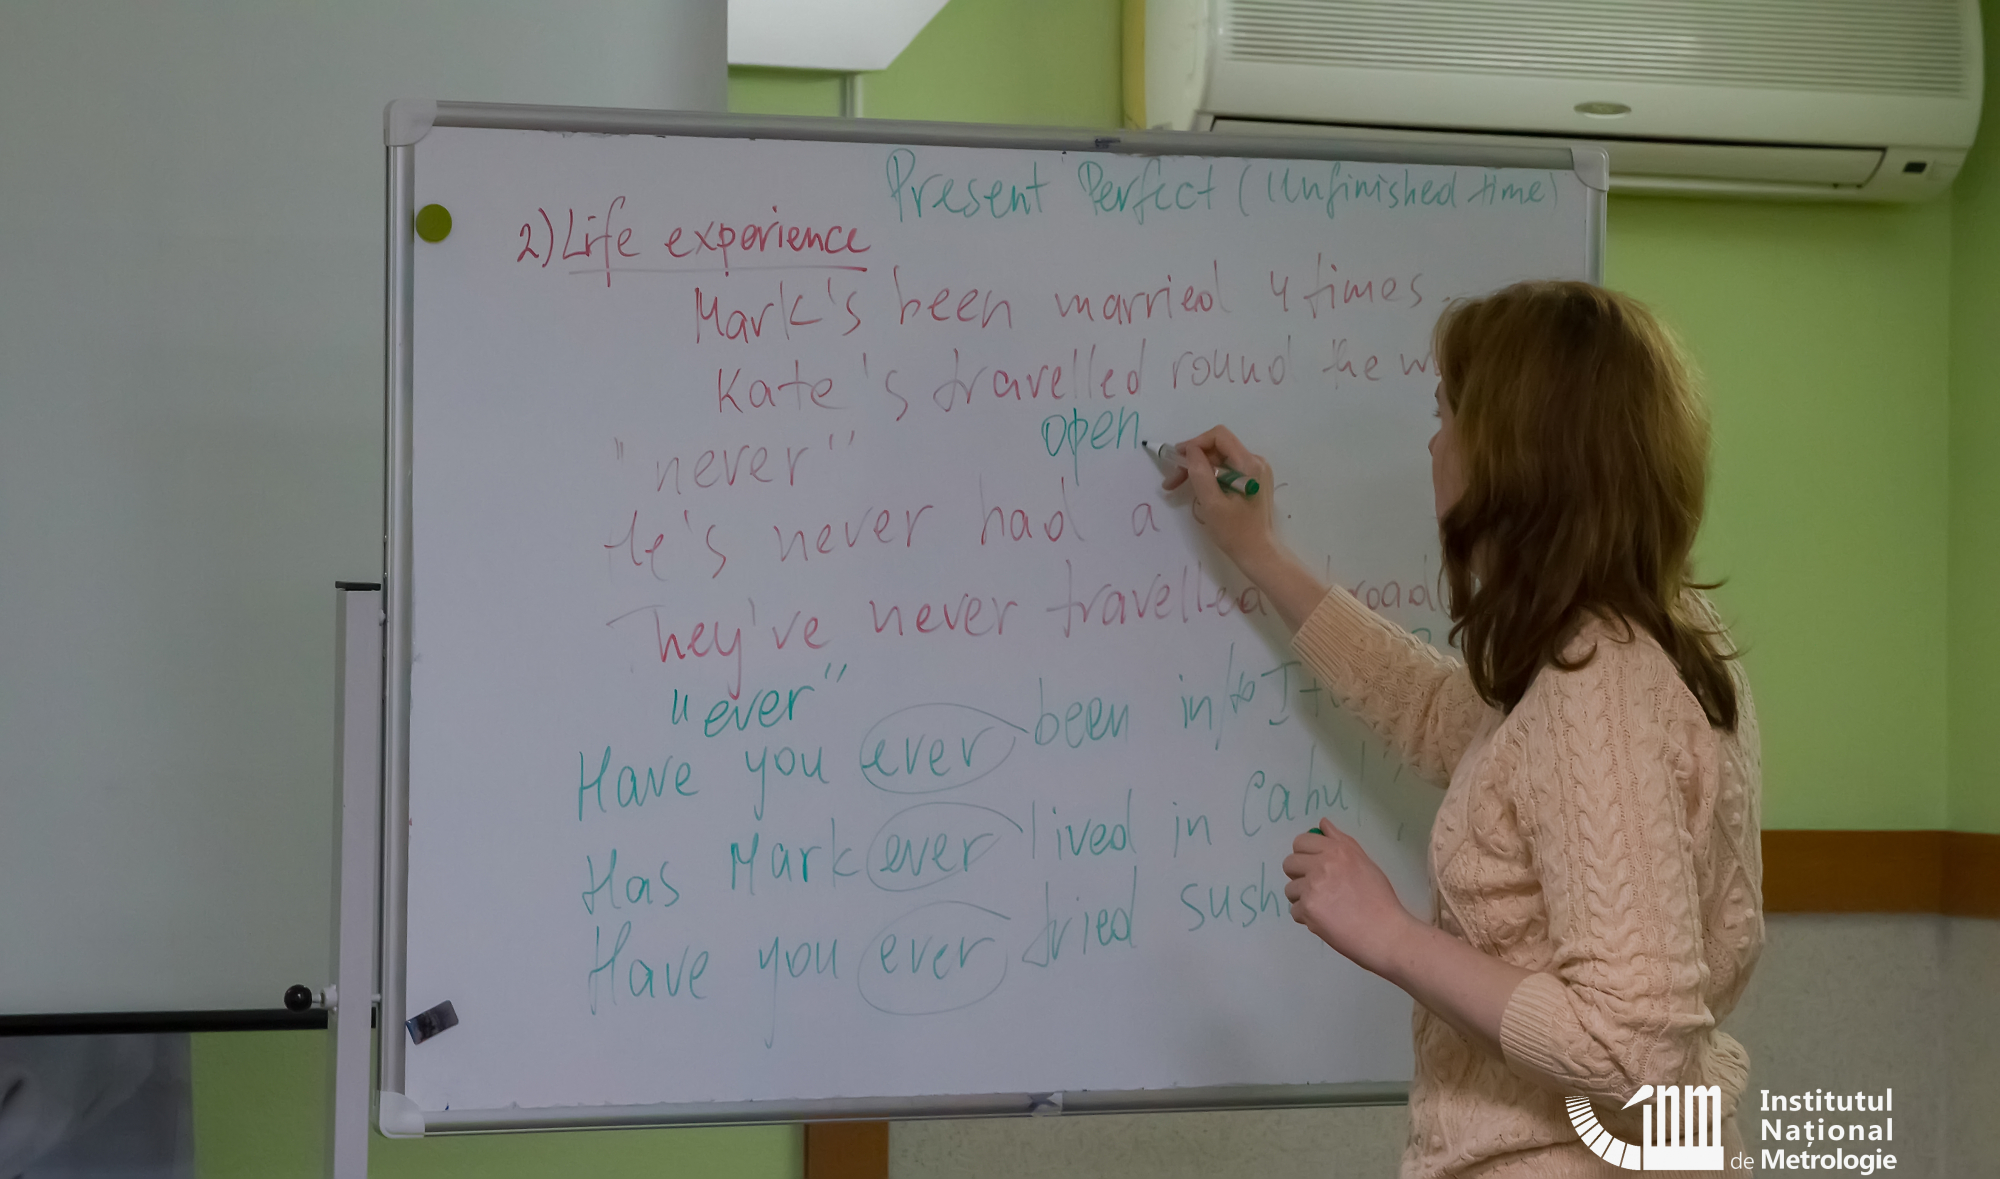 Present Perfect (Unfinished time)
2) Life experience
Mark's been married 4 times.
Kate's travelled round the
"never"
open
He's never had a
They've never travelled
"ever"
Have you ever been in/to
Has Mark ever lived in Cahul
Have you ever tried
inm
Institutul
Național
de Metrologie